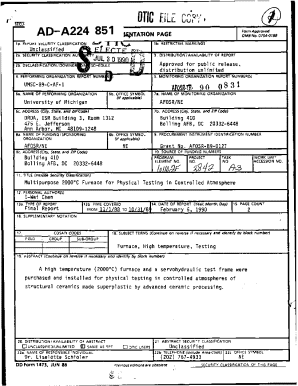 DTIC FILE COPY
AD-A224 851
ENTATION PAGE
Form Approved
OMB No. 0704-0188
1a REPORT SECURITY CLASSIFICATION
Unclassified
1b RESTRICTIVE MARKINGS
2a SECURITY CLASSIFICATION
JUL 30 1990
3 DISTRIBUTION/AVAILABILITY OF REPORT
Approved for public release,
distribution unlimited
4 PERFORMING ORGANIZATION REPORT NUMBER(S)
UMSC-89-C-AF-1
5 MONITORING ORGANIZATION REPORT NUMBER(S)
AFOSR-TR- 90 0831
6a NAME OF PERFORMING ORGANIZATION
University of Michigan
6b OFFICE SYMBOL
(If applicable)
7a NAME OF MONITORING ORGANIZATION
AFOSR/NE
6c ADDRESS (City, State, and ZIP Code)
DRDA, ISR Building 3, Room 1312
475 E. Jefferson
Ann Arbor, MI 48109-1248
7b ADDRESS (City, State, and ZIP Code)
Building 410
Bolling AFB, DC 20332-6448
8b OFFICE SYMBOL
(If applicable)
AFOSR/NE
NE
9 PROCUREMENT INSTRUMENT IDENTIFICATION NUMBER
Grant No. AFOSR-89-0127
8c ADDRESS (City, State, and ZIP Code)
Building 410
Bolling AFB, DC 20332-6448
10 SOURCE OF FUNDING NUMBERS
PROGRAM
ELEMENT NO.
PROJECT
NO.
TASK
NO.
WORK UNIT
ACCESSION NO.
A3
11 TITLE (Include Security Classification)
Multipurpose 2000°C Furnace for Physical Testing in Controlled Atmosphere
12 PERSONAL AUTHOR(S)
I-Wei Chen
13a TYPE OF REPORT
Final Report
13b TIME COVERED
14 DATE OF REPORT (Year, Month, Day)
February 6, 1990
15 PAGE COUNT
2
16 SUPPLEMENTARY NOTATION
17 COSATI CODES
FIELD GROUP SUB-GROUP
18 SUBJECT TERMS (Continue on reverse if necessary and identify by block number)
Furnace, High temperature, Testing
19 ABSTRACT (Continue on reverse if necessary and identify by block number)
A high temperature (2000°C) furnace and a servohydraulic test frame were
purchased and installed for physical testing in controlled atmospheres of
structural ceramics made superplastic by advanced ceramic processing.
20 DISTRIBUTION/AVAILABILITY OF ABSTRACT
UNCLASSIFIED/UNLIMITED SAME AS RPT DTIC USERS
21 ABSTRACT SECURITY CLASSIFICATION
Unclassified
22a NAME OF RESPONSIBLE INDIVIDUAL
Dr. Liselotte Schioler
22b TELEPHONE (Include Area Code)
(202) 767-4933
22c OFFICE SYMBOL
NE
DD Form 1473, JUN 86
Previous editions are obsolete
SECURITY CLASSIFICATION OF THIS PAGE